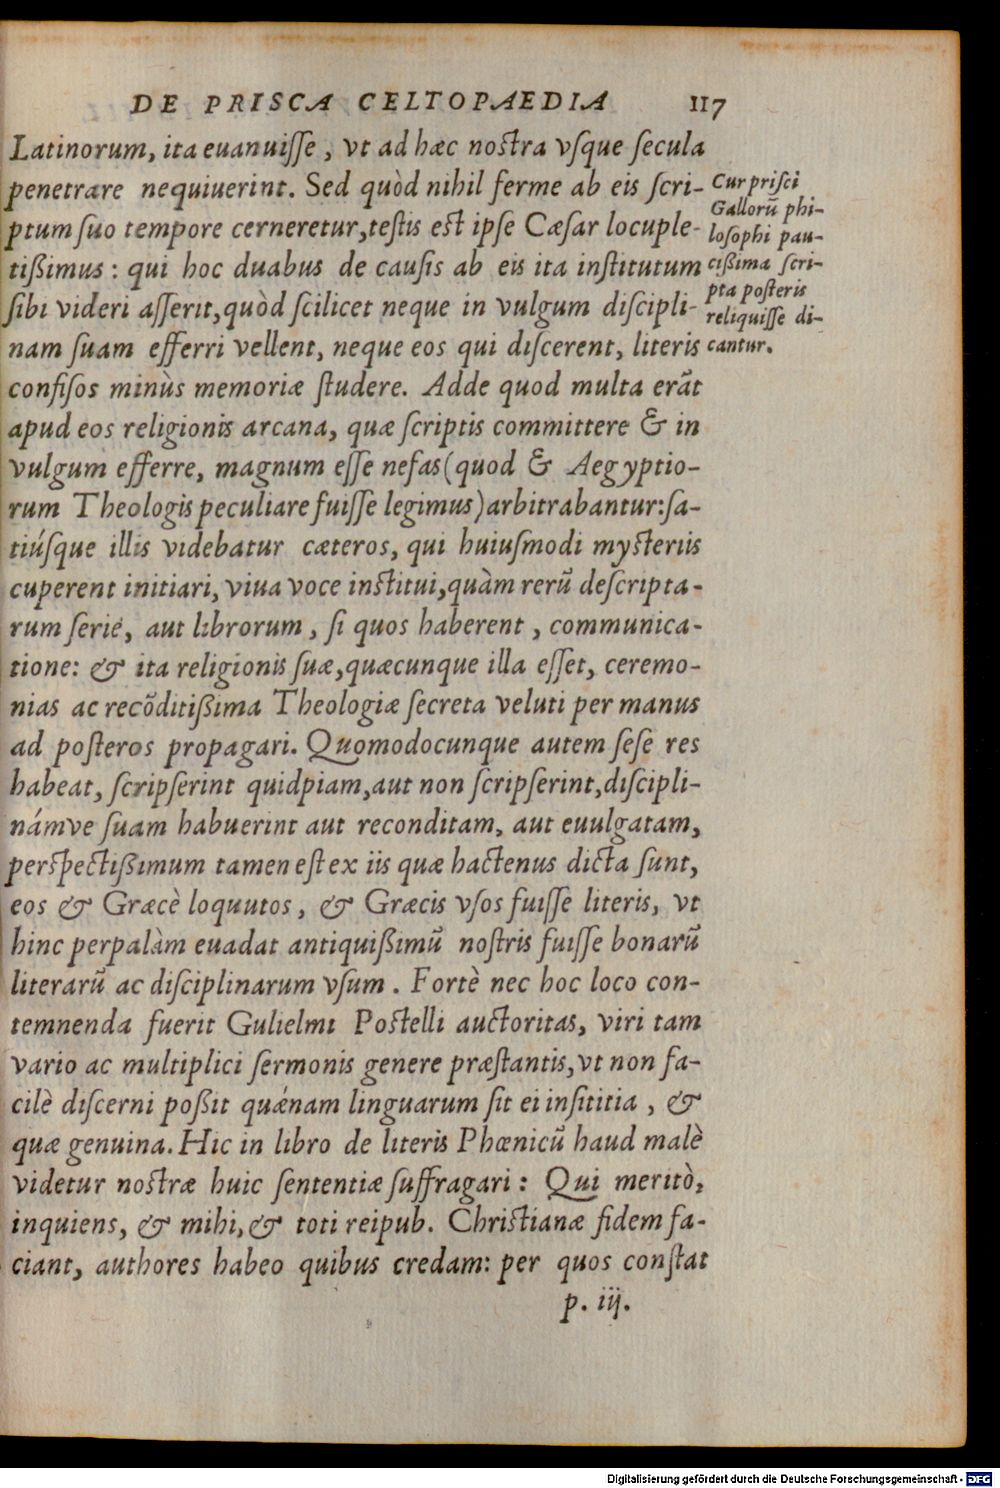 DE PRISCA CELTOPAEDIA 117
Latinorum, ita euanuiſſe, vt ad hæc noſtra vſque ſecula
penetrare nequiuerint. Sed quòd nihil ferme ab eis ſcri-
ptum ſuo tempore cerneretur, teſtis eſt ipſe Cæſar locuple-
tißimus: qui hoc duabus de cauſis ab eis ita inſtitutum
ſibi videri aſſerit, quòd ſcilicet neque in vulgum diſcipli-
nam ſuam efferri vellent, neque eos qui diſcerent, literis
confiſos minùs memoriæ ſtudere. Adde quod multa erãt
apud eos religionis arcana, quæ ſcriptis committere & in
vulgum efferre, magnum eſſe nefas (quod & Aegyptio-
rum Theologis peculiare fuiſſe legimus) arbitrabantur: ſa-
tiúſque illis videbatur cæteros, qui huiuſmodi myſteriis
cuperent initiari, viua voce inſtitui, quàm rerũ deſcripta-
rum ſerie, aut librorum, ſi quos haberent, communica-
tione: & ita religionis ſuæ, quæcunque illa eſſet, ceremo-
nias ac recõditißima Theologiæ ſecreta veluti per manus
ad poſteros propagari. Quomodocunque autem ſeſe res
habeat, ſcripſerint quidpiam, aut non ſcripſerint, diſcipli-
námve ſuam habuerint aut reconditam, aut euulgatam,
perſpectißimum tamen eſt ex iis quæ hactenus dicta ſunt,
eos & Græcè loquutos, & Græcis vſos fuiſſe literis, vt
hinc perpalàm euadat antiquißimũ noſtris fuiſſe bonarũ
literarũ ac diſciplinarum vſum. Fortè nec hoc loco con-
temnenda fuerit Gulielmi Poſtelli auctoritas, viri tam
vario ac multiplici ſermonis genere præſtantis, vt non fa-
cilè diſcerni poßit quǽnam linguarum ſit ei inſititia, &
quæ genuina. Hic in libro de literis Phœnicũ haud malè
videtur noſtræ huic ſententiæ ſuffragari: Qui meritò,
inquiens, & mihi, & toti reipub. Chriſtianæ fidem fa-
ciant, authores habeo quibus credam: per quos conſtat
p. iij.
Cur priſci
Gallorũ phi-
loſophi pau-
cißima ſcri-
pta poſteris
reliquiſſe di-
cantur.
Digitalisierung gefördert durch die Deutsche Forschungsgemeinschaft - DFG